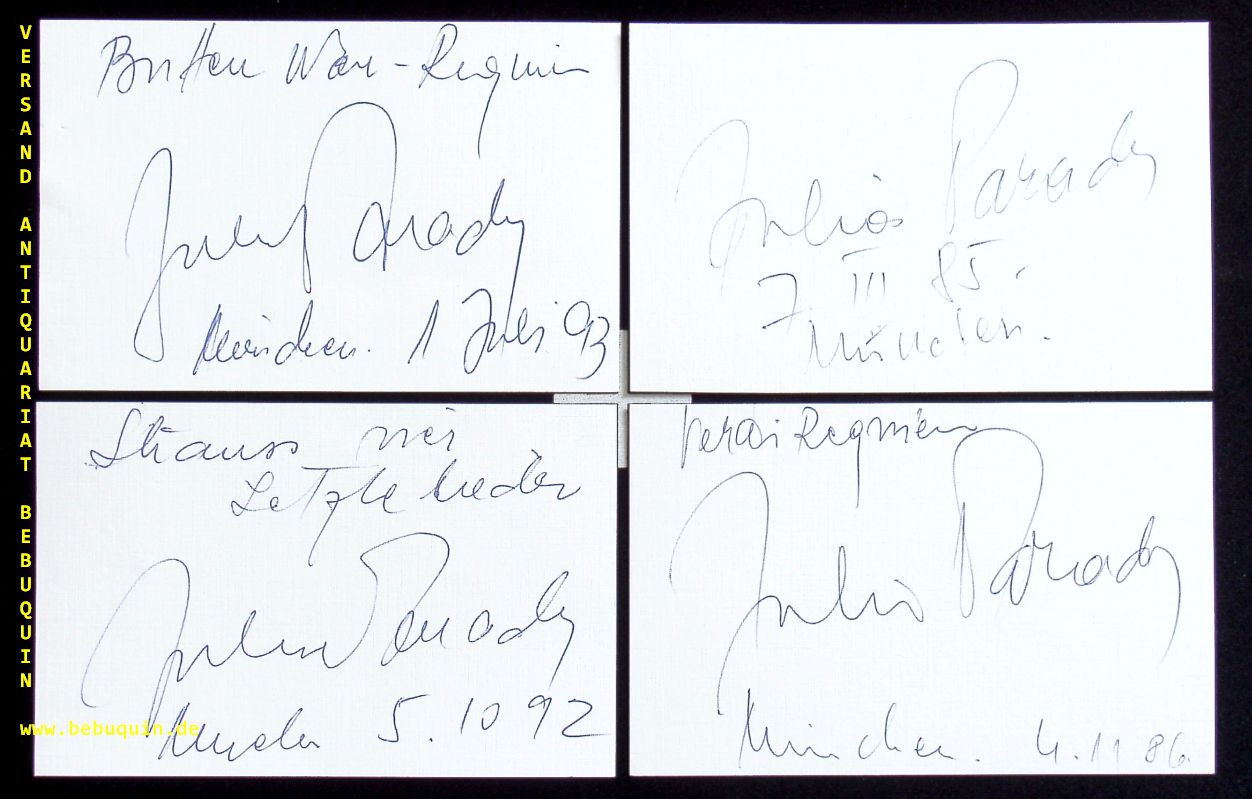 VERSAND ANTIQUARIAT BEBUQUIN
www.bebuquin.de
Britten War-Requiem
Julia Varady
München. 1 Juli 93
Julia Varady
7 III 85.
München.
Strauss vier
Letzte Lieder
Julia Varady
München 5.10 92
Verdi Requiem
Julia Varady
München. 4.11 86.